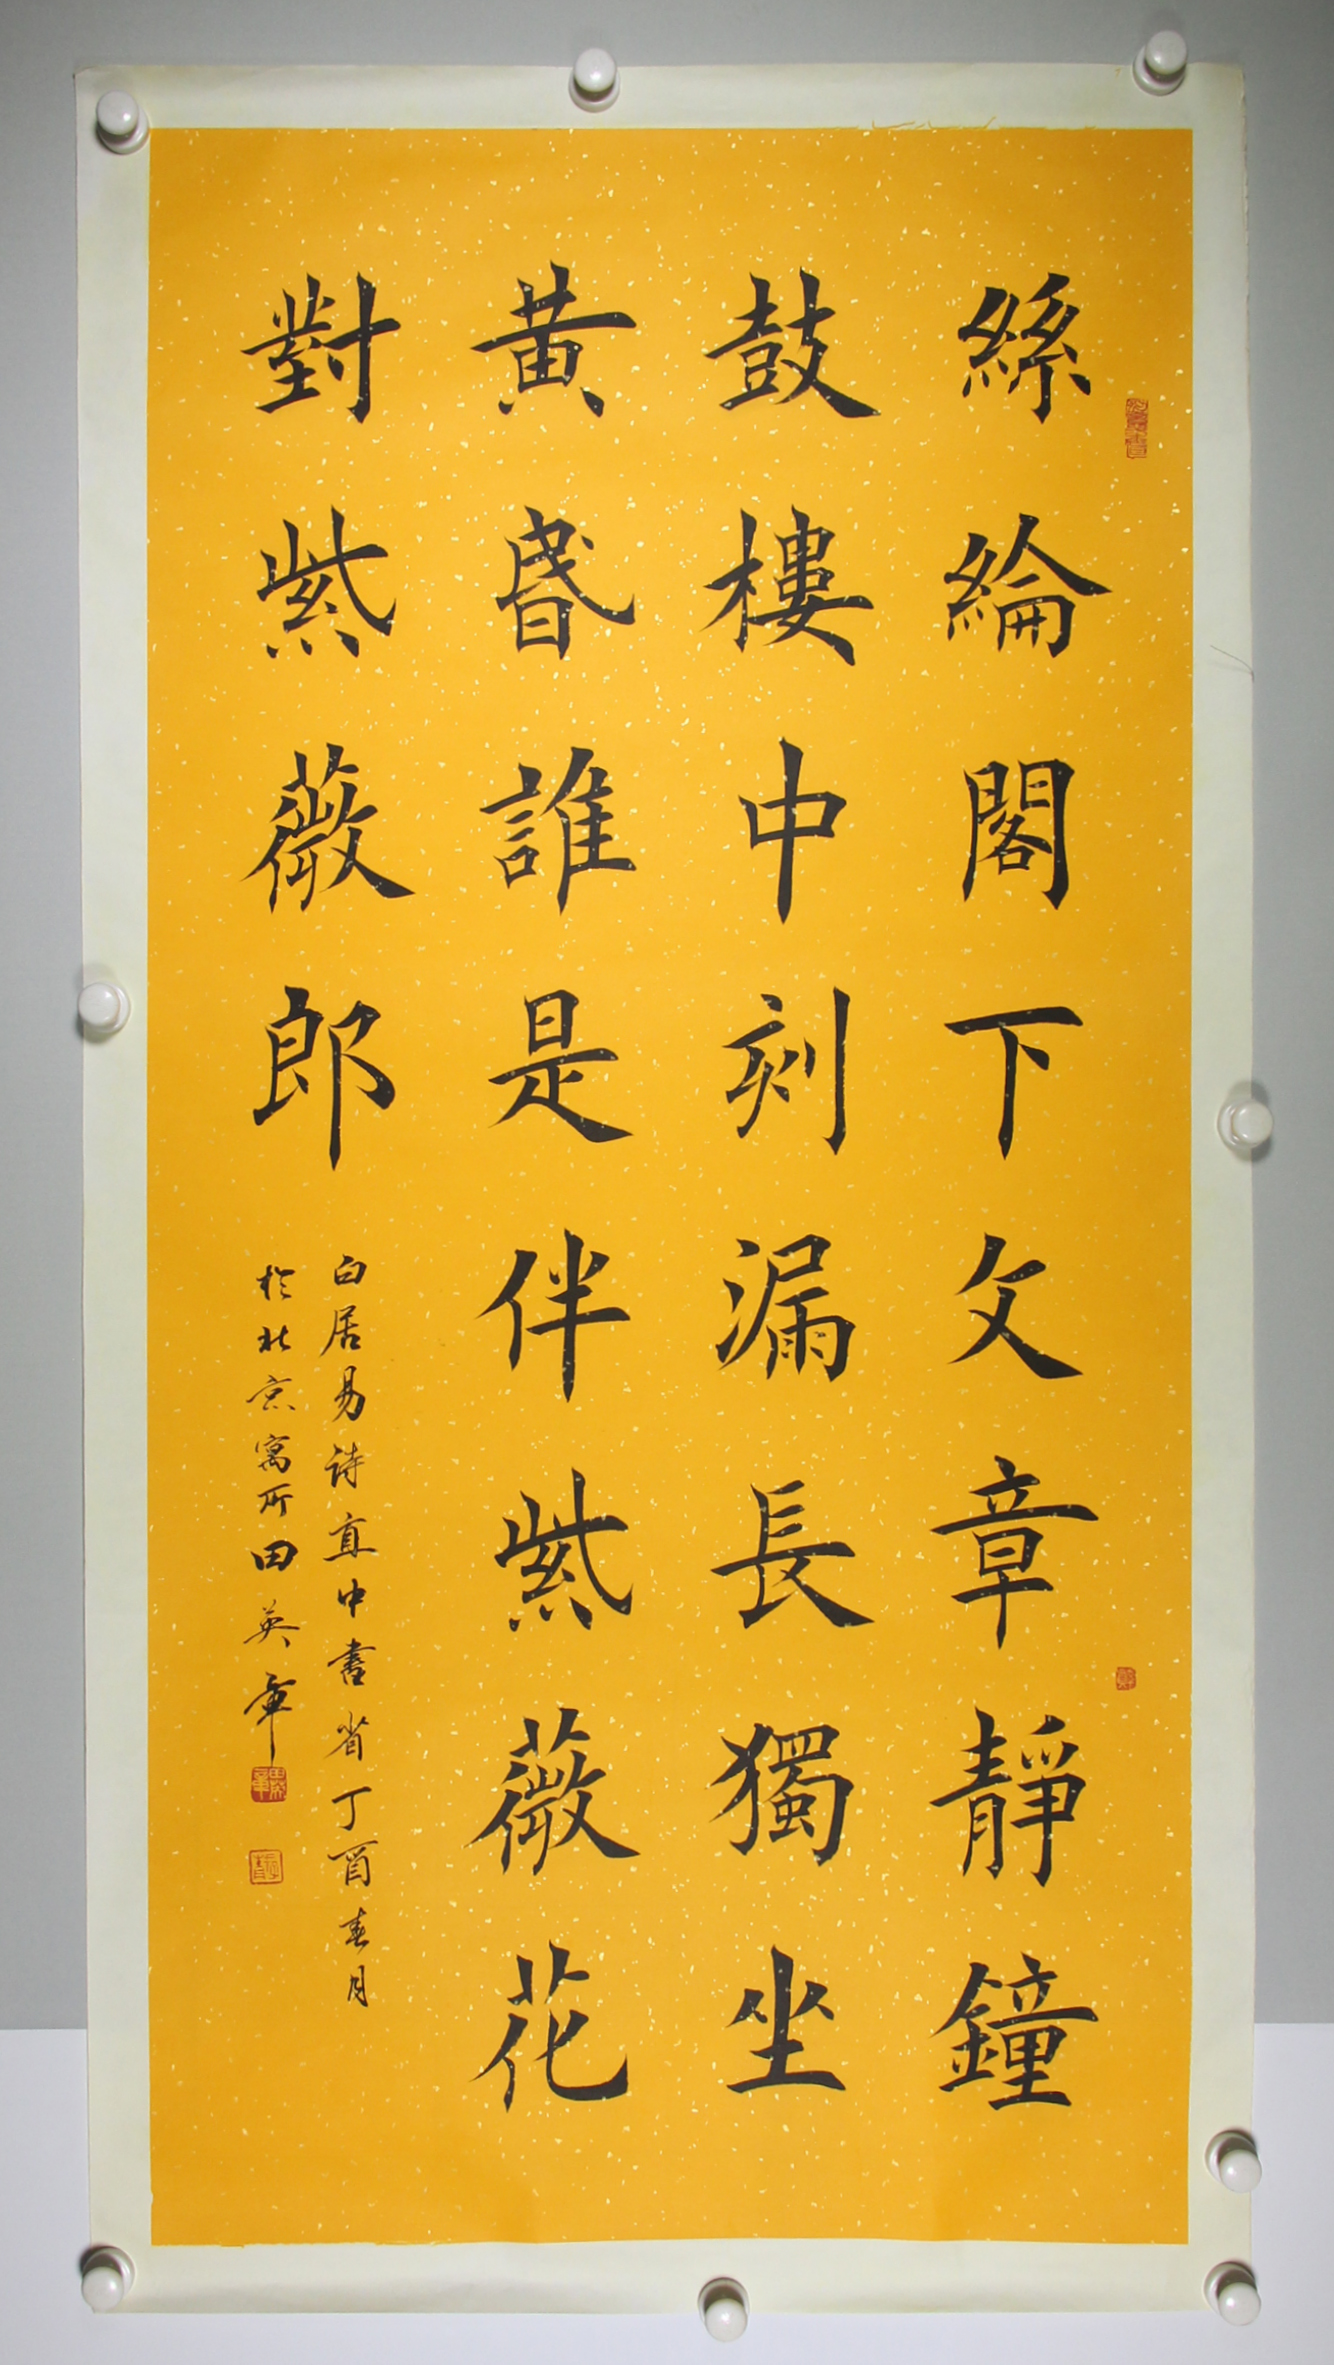 絲綸閣下文章靜鐘
鼓樓中刻漏長獨坐
黄昬誰是伴紫薇花
對紫薇郎
白居易詩直中書省丁酉春月
於北京寓所田英章